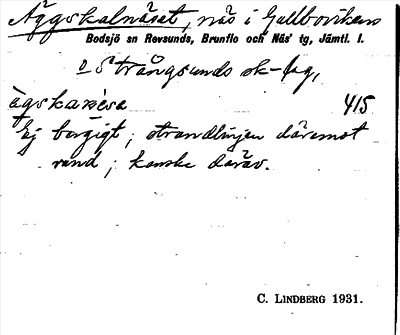 Äggskalnäset, näs i Gallboviken
Bodsjö sn Revsunds, Brunflo och Näs' tg, Jämtl. l.
o Strångsunds sk-lag,
ägskanèsa 415
Ej bergigt; strandlinjen däremot
rund; kanske därav.
C. LINDBERG 1931.